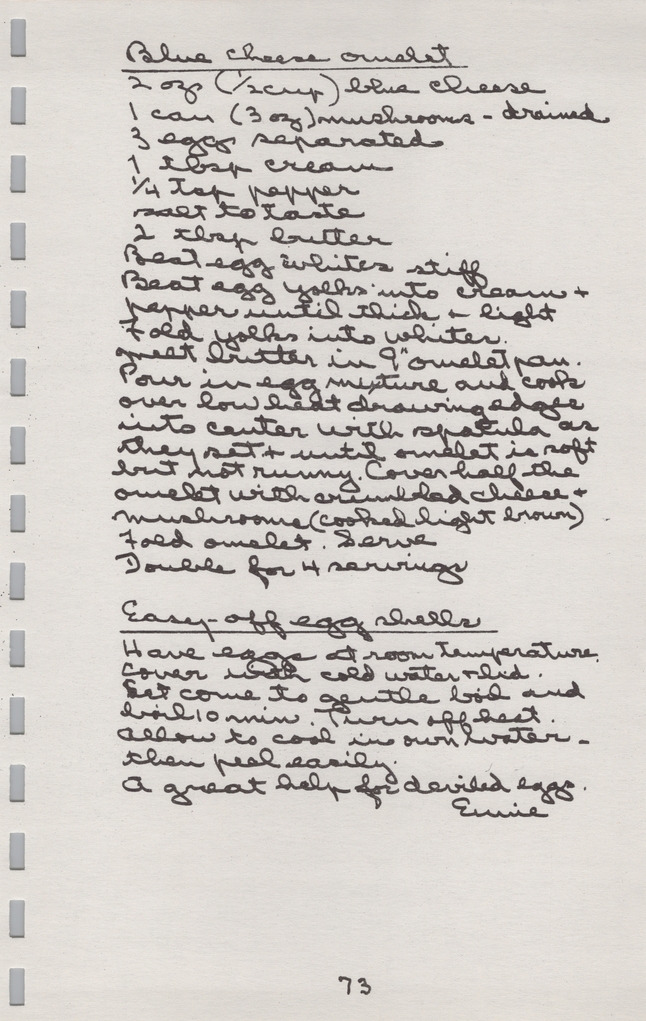 Blue cheese omelet
2 ozs (1/2 cup) blue cheese
1 can (3 oz) mushrooms - drained
3 eggs separated
1 tbsp cream
1/4 tsp pepper
salt to taste
2 tbsp butter
Beat egg whites stiff
Beat egg yolks into cream +
pepper until thick + light
Fold yolks into whites.
melt butter in 9" omelet pan.
Pour in egg mixture and cook
over low heat drawing edges
into center with spatula as
they set + until omelet is soft
but not runny. Cover half the
omelet with crumbled cheese +
mushrooms (cooked light brown)
Fold omelet. Serve
Double for 4 servings
Easy-off egg shells
Have eggs at room temperature.
Cover with cold water + lid.
Let come to gentle boil and
boil 10 min. Turn off heat.
Allow to cool in own water -
then peel easily.
A great help for deviled eggs.
Ernie
73